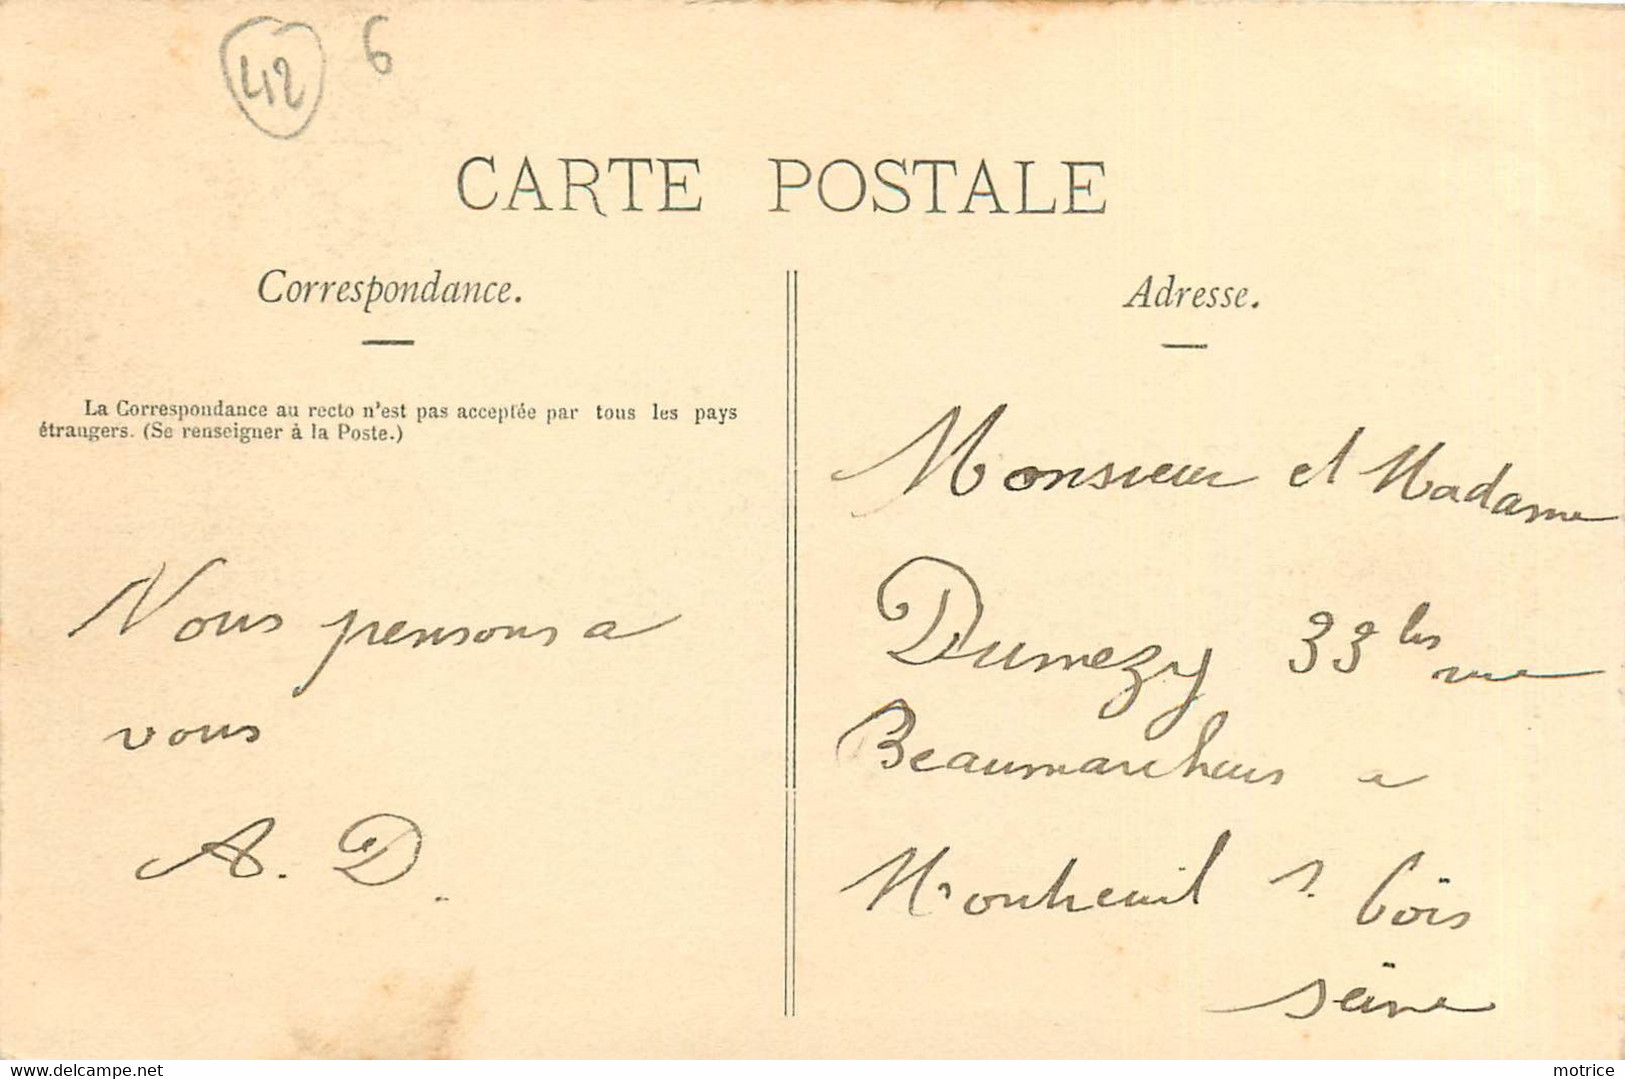 42 6
CARTE POSTALE
Correspondance.
La Correspondance au recto n'est pas acceptée par tous les pays
étrangers. (Se renseigner à la Poste.)
Nous pensons a
vous
A. D.
Adresse.
Monsieur et Madame
Dumezy 33 bis rue
Beaumarchais a
Montreuil s. bois
seine
www.delcampe.net
motrice